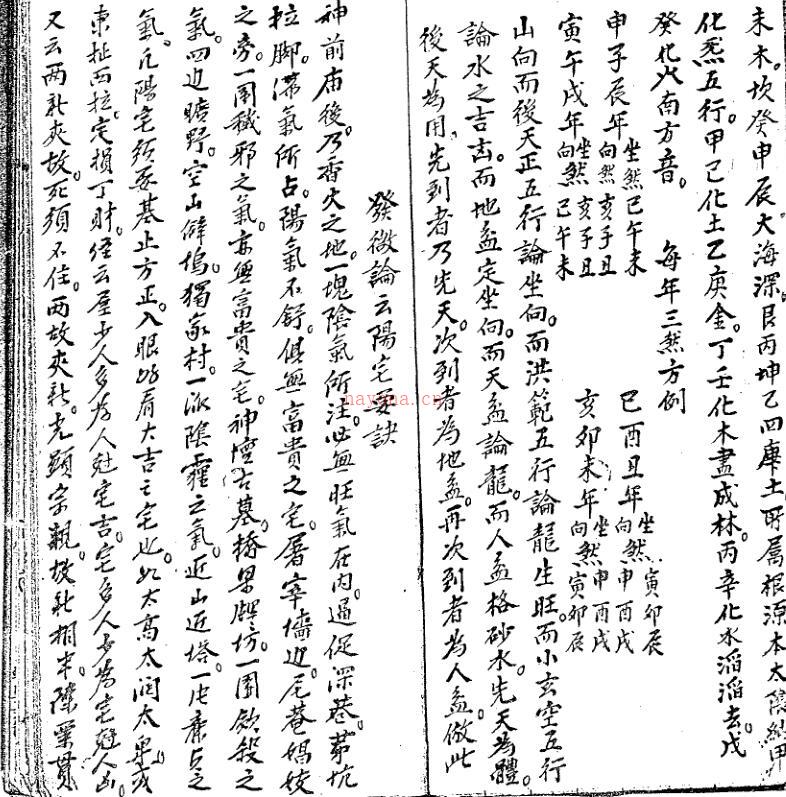 未木。坎癸申辰大海深。艮丙坤乙四庫土。所屬根源本太陰納甲
化炁五行。甲己化土乙庚金。丁壬化木盡成林。丙辛化水滔滔去。戊
癸化火南方音。 每年三煞方例
申子辰年坐煞巳午未向煞亥子丑 巳酉丑年坐煞寅卯辰向煞申酉戌
寅午戌年坐煞亥子丑向煞巳午未 亥卯未年坐煞申酉戌向煞寅卯辰
山向而後天正五行論坐向。而洪範五行論龍生旺。而小玄空五行
論水之吉凶。而地盤定坐向。而天盤論龍。而人盤格砂水。先天為體。
後天為用。先到者乃先天。次到者為地盤。再次到者為人盤倣此
發微論云陽宅要訣
神前庙後。乃香火之地。一塊陰氣所注。必無旺氣在内。逼促深巷。茅坑
拉脚。滞氣所占。陽氣不舒。俱無富貴之宅。屠宰墻边。尼菴娼妓
之旁。一團穢邪之氣。亦無富貴之宅。神壇古墓。橋梁牌坊。一團欽殺之
氣。四边曠野。空山僻塢。獨家村。一派陰霾之氣。近山近塔。一片廉貞之
氣。凡陽宅須要基止方正。入眼好看大吉之宅也。如太高太阔太卑或
東扯西拉。定損丁財。經云屋少人多為人尅宅吉。宅多人少為宅尅人凶。
又云两新夾故。死須不住。两故夾新。光顕宗親。故新相半。陳粟貫
nayona.cn